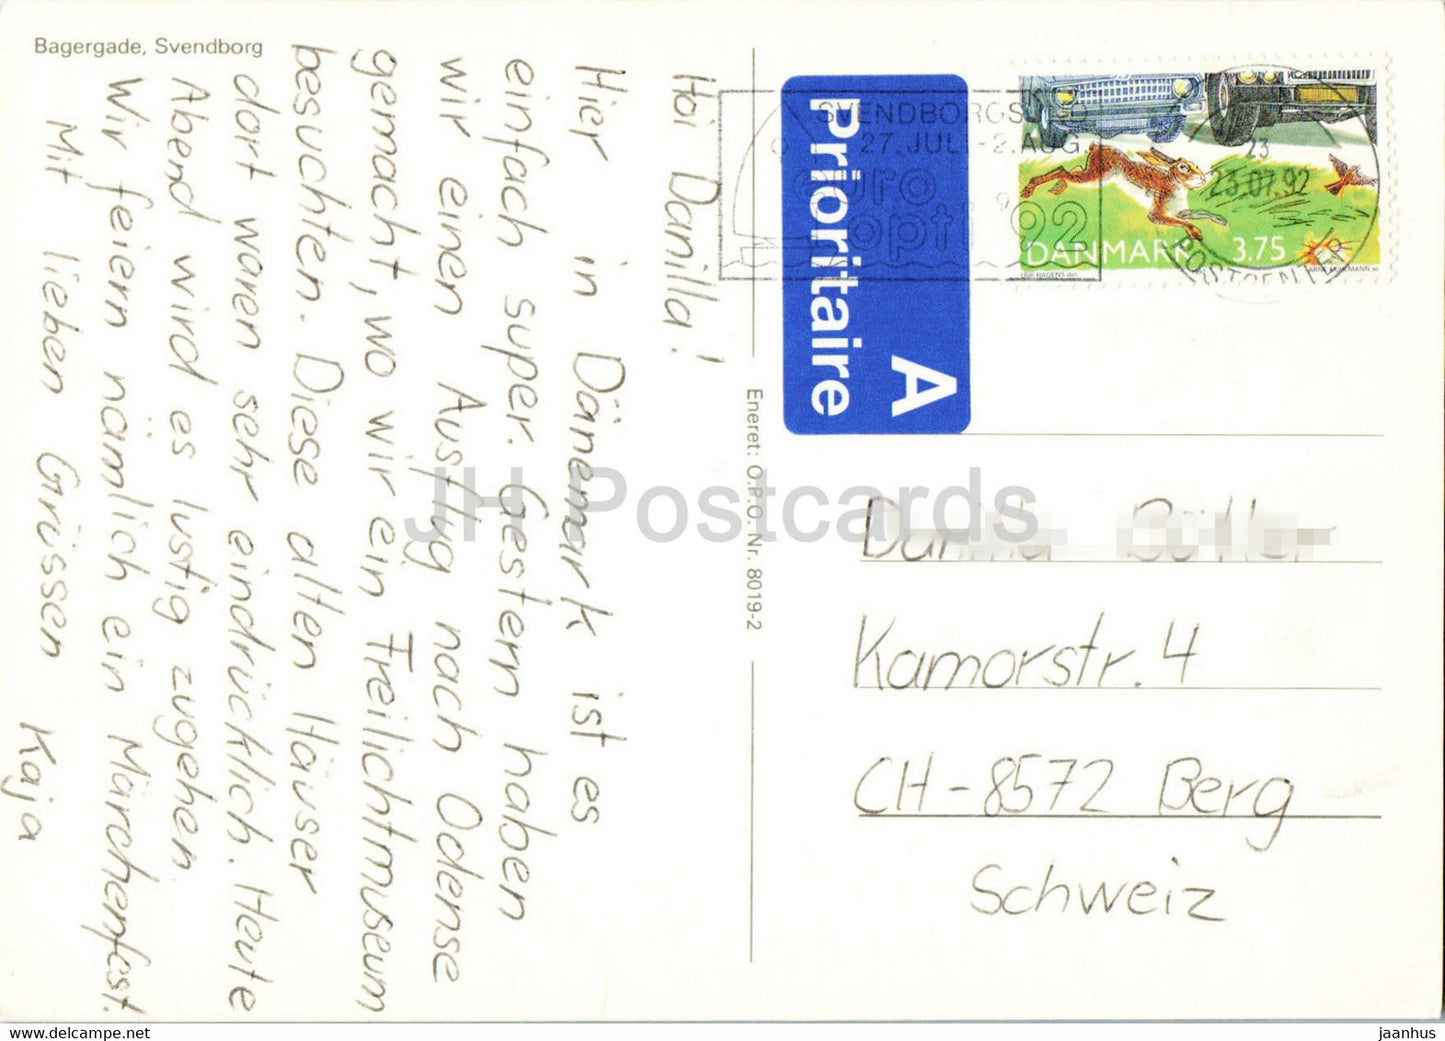 Bagergade, Svendborg
Hoi Danilla!
Hier in Dänemark ist es
einfach super. Gestern haben
wir einen Ausflug nach Odense
gemacht, wo wir ein Freilichtmuseum
besuchten. Diese alten Häuser
dort waren sehr eindrücklich. Heute
Abend wird es lustig zugehen.
Wir feiern nämlich ein Märchenfest.
Mit lieben Grüssen Kaja
Eneret: O.P.O. Nr. 8019-2
A
Prioritaire
SVENDBORGSUND
27.JULI-2.AUG.
euro
opti '92
23
23.07.92
POSTCENTER
DANMARK 3.75
Kamorstr. 4
CH-8572 Berg
Schweiz
JH Postcards
www.delcampe.net
jaanhus